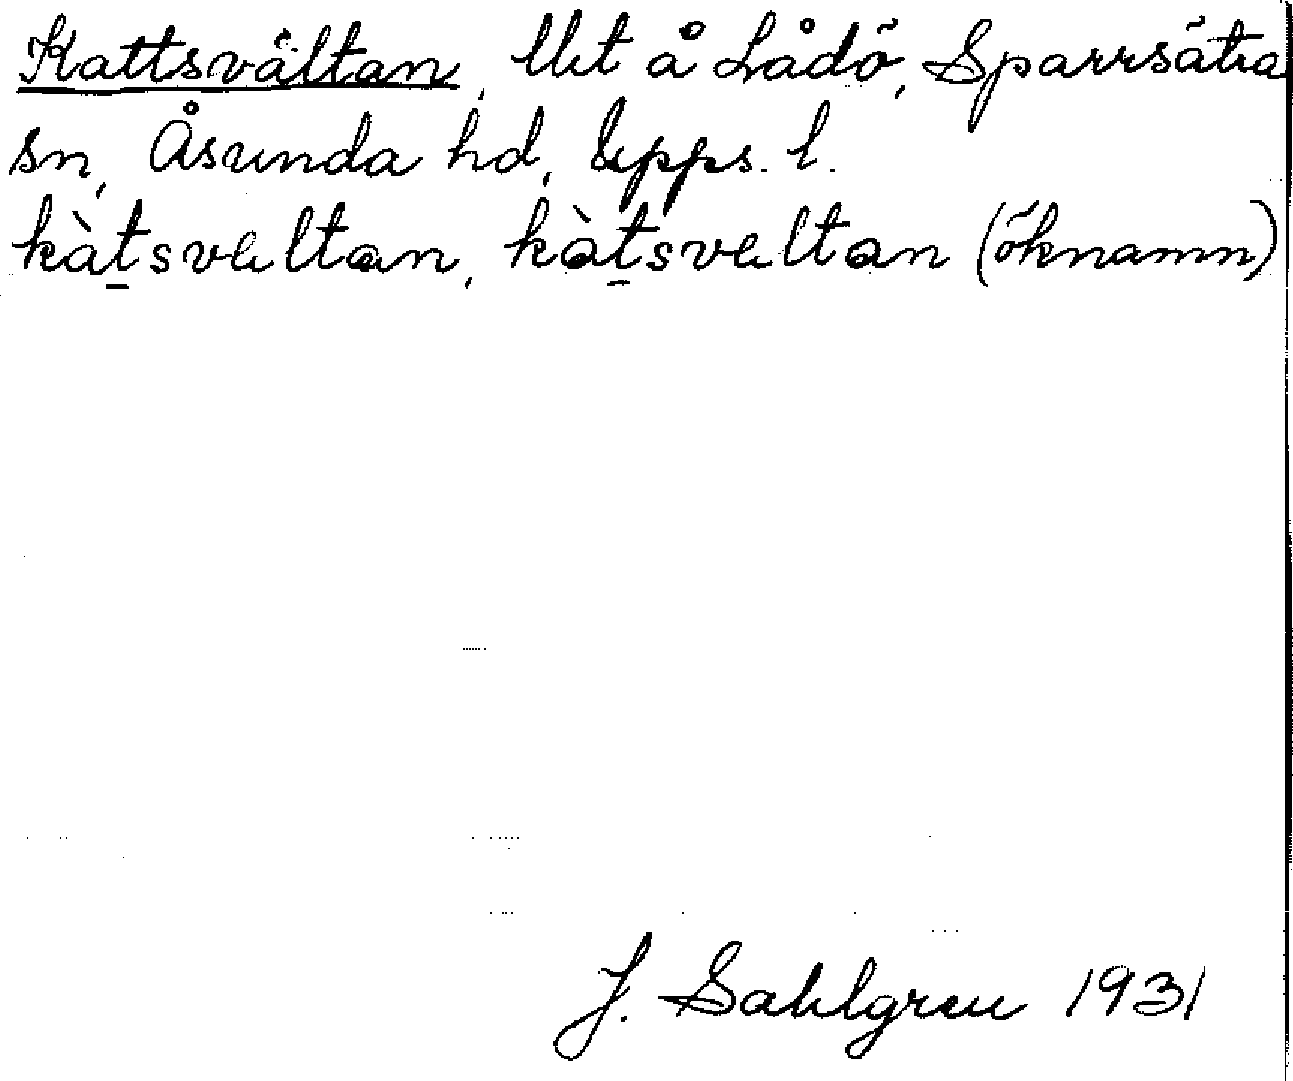 Kattsvältan, Utet å Lådö, Sparrsätra
sn, Åsunda hd, Upps. l.
kàtsvältan, kàtsvältan (öknamn)
J. Sahlgren 1931